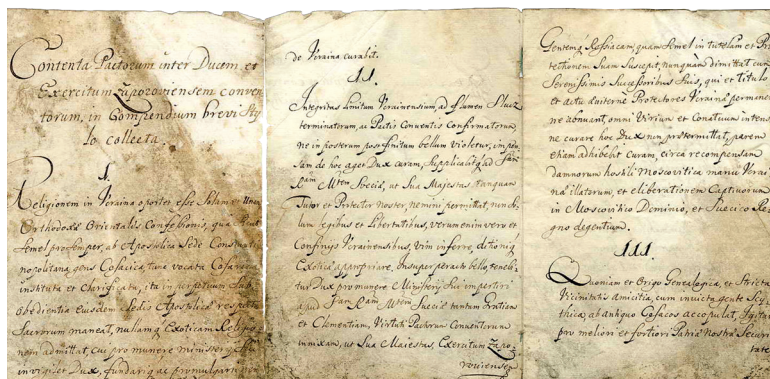 Contenta Pactorum inter Ducem et
Exercitum Zaporoviensem conven
torum, in Compendium brevi Sty
lo collecta.
I.
Religionem in Ucraina oportet esse Solam et Unam
Orthodoxæ Orientalis Confessionis, quæ
semel pro semper, ab Apostolica Sede Constanti
nopolitana, gens Cosacica, tunc vocata
instituta et clarificata, ita in perpetuum sub
Obedientia eiusdem Sedis Apostolicæ respectu
Sacrorum maneat, nullamq Exoticam Religio
nem admittat, cui pro munere ministerij
invigilet Dux, fundariq ac promulgari non
de Ucraina curabit.
II.
Integritas limitum Ucrainensium, ad flumen Sluez
terminatorum, ac Pactis Conventis confirmatorum
ne in posterum post finitum bellum violetur,
sam de hoc aget Dux curam, Supplicabitq ad
Mtem Sueciæ, ut Sua Majestas tanquam
Tutor et Protector noster, nemini permittat, non
lum legibus et Libertatibus, verum enim vero et
Confinys Ucrainensibus, vim inferre, ditioniq
Exoticæ appropriare, Insuper peracto bello,
tur Dux pro munere Ministerij Sui impertiri
apud Mtem Sueciæ tantam Gratiam
et Clementiam, Virtuti Pactorum Conventorum
innixam, ut Sua Maiestas, Exercitum Zapo
roviensem
Gentemq Rossiacam, quam Semel in tutelam et Pro
tectionem Suam Suscepit, nunquam dimittat cum
Serenissimis Successoribus Suis, qui et titulo
et actu æternè Protectores Ucrainæ permane
re omni Virium et Conatuum intens
ne curare hoc Dux non prætermittat, parem
etiam adhibebit curam, circa recompensam
damnorum hostili Moscovitica manu Ucrai
næ illatorum, et eliberationem Captivorum
in Moscovitico Dominio, et Suecico Re
gno degentium.
III.
Quoniam et Origo Genealogica, et Stricta
Vicinitatis amicitia, cum invicta gente Scy
thica, ab antiquo Cosacos accopulat, Igitur
pro meliori et fortiori Patriæ Nostræ Securi
tate